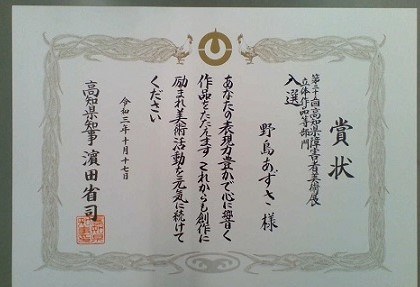 賞状
第二十五回高知県障害者美術展
立体作品等部門
入選
野島あずさ様
あなたの表現力豊かで心に響く
作品をたたえます これからも創作に
励まれ美術活動を元気に続けて
ください
令和三年十月十七日
高知県知事 濵田省司